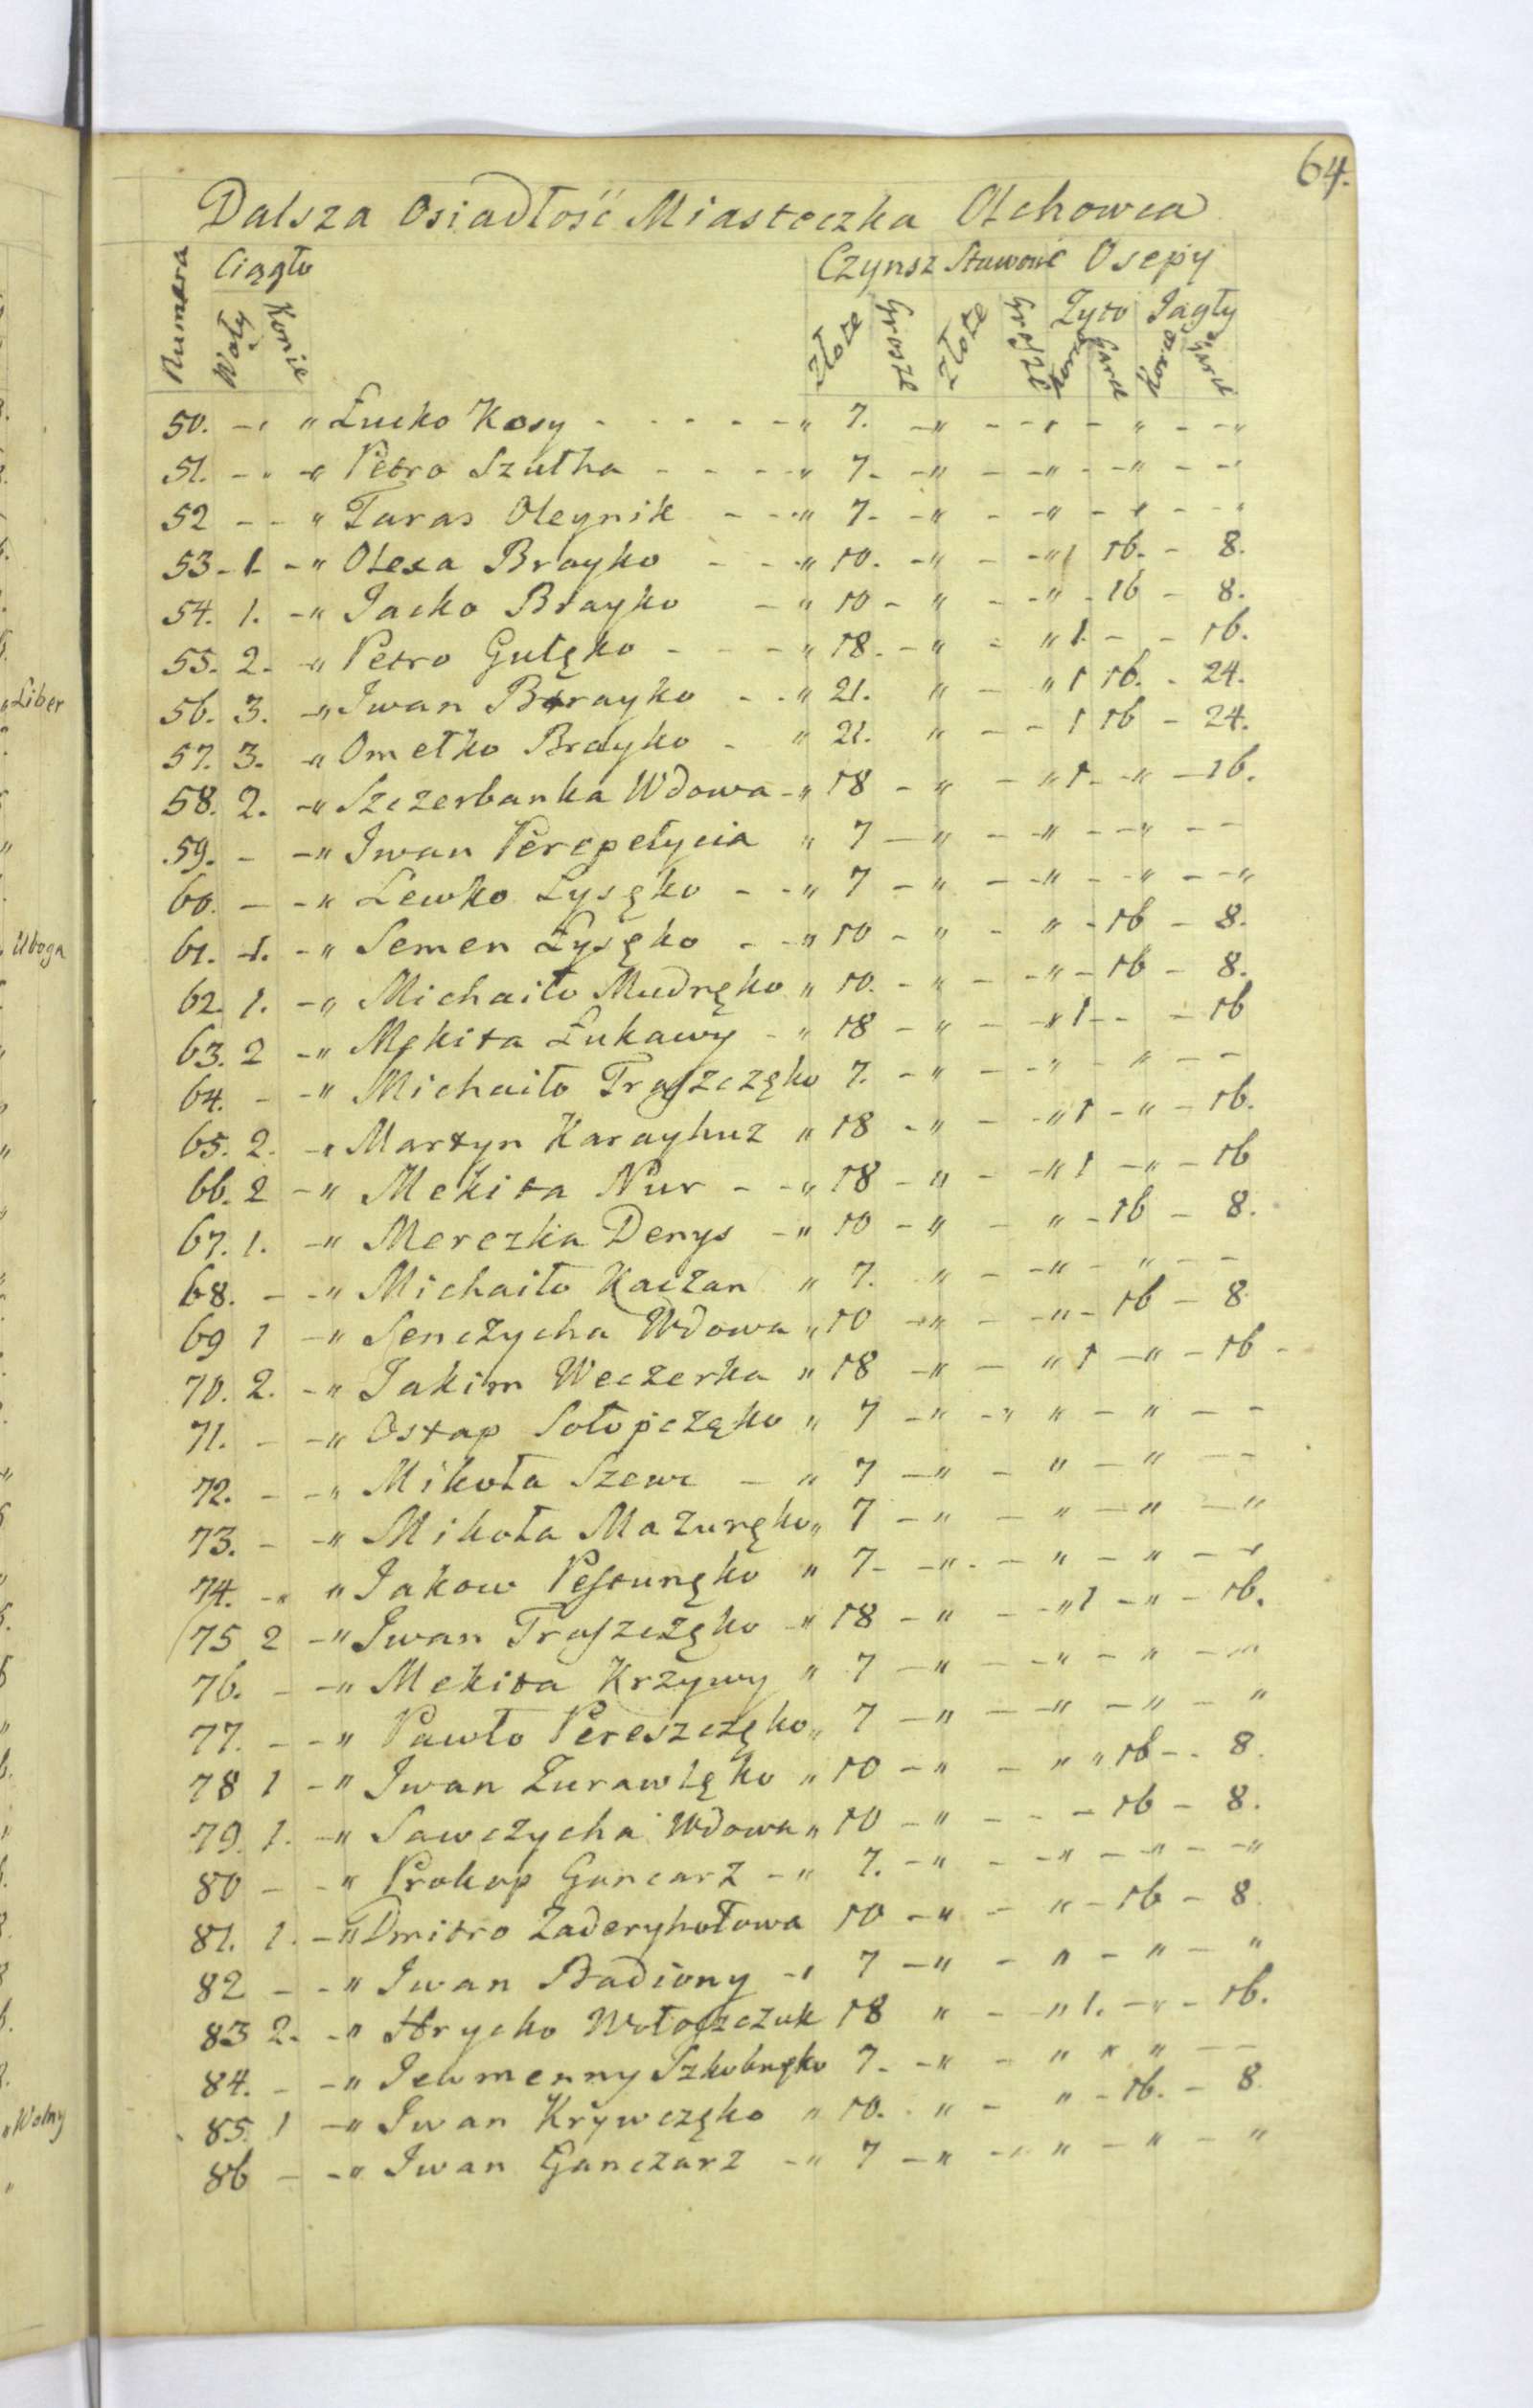 64.
Dalsza Osiadłość Miasteczka Olchowca
Numera Ciągło Czynsz Stawowe Osepy
Woły Konie Złote Grosze Złote Grosze Żyto Jagły
Garce Garce
50. - " " Łucko Kosy - - - - - " 7. - " - - " - " - - "
51. - " - " Petro Szutka - - - - " 7. - " - - " - - " - - "
52 - - " Taras Oleynik - - - " 7. - " - - " - " - - "
53 - 1 - - " Olexa Brayko - - - " 10. - " - - " 1 16. - 8.
54. 1. - " Jacko Brayko - " 10 - " - - " - 16 - 8.
55. 2. - " Petro Gulęko - - - " 18. - " - " 1. - - 16.
56. 3. - " Iwan Brayko - - " 21. " - " 1 16. - 24.
57. 3. - " Omelko Brayko - " 21. " - - 1 16 - 24.
58. 2. - " Szczerbanka Wdowa - " 18 - " - " 1 - " - 16.
59. - - " Iwan Perepełycia " 7 - " - - " - - " - -
60. - - " Lewko Łysęko - - " 7 - " - - " - - " - - "
61. 1. - " Semen Łysęko - - " 10 - " - " - 16 - 8.
62. 1. - " Michaiło Mudręko " 10. - " - - " - 16 - 8.
63. 2 - " Mękita Łukawy - " 18 - " - - " 1 - - - 16
64. - - " Michaiło Traszczęko 7. - " - - " - " - -
65. 2. - " Martyn Karayhuz " 18 - " - - " 1 - " - 16.
66. 2 - " Mekita Nur - - " 18 - " - - " 1 - " - 16
67. 1. - " Merezka Denys - " 10 - " - " - 16 - 8.
68. - - " Michaiło Kaczan " 7. " - - " - " - -
69 1 - " Senczycha Wdowa " 10 - " - - " - 16 - 8.
70. 2. - " Jakim Weczerka " 18 - " - " 1 - " - 16 -
71. - - " Ostap Sołopczęko " 7 - " - " " - " - -
72. - - " Mikoła Szewc - " 7 - " - " - " - -
73. - - " Mikoła Mazuręko " 7 - " - " - " - "
74. - " " Jakow Pestunęko " 7 - - " - - " - " - - "
75 2 - " Iwan Traszczęko - " 18 - " - - " 1 - " - 16.
76. - - " Mekita Krzywy " 7 - " - - " - " - - "
77. - - " Pawło Pereszczęko " 7 - " - - " - " - "
78 1 - " Iwan Żurawlęko " 10 - " - " " 16 - - 8.
79. 1. - " Sawczycha Wdowa " 10 - " - - - 16 - 8.
80 - - " Prokop Gancarz - " 7. - " - - " - " - - "
81. 1. - " Dmitro Zaderyhołowa 10 - " - " - 16 - 8.
82 - - " Iwan Badiony - " 7 - " - " - " - "
83 2. - " Hrycko Wołoszczuk 18 " - - " 1. - " - 16.
84. - - " 7. - " - " " " - -
85. 1 - " Iwan Krywczęko " 10. - " - " - 16. - 8.
86 - - " Iwan Ganczarz - " 7 - " - " " - " - "
" Liber
" Uboga
" Wolny